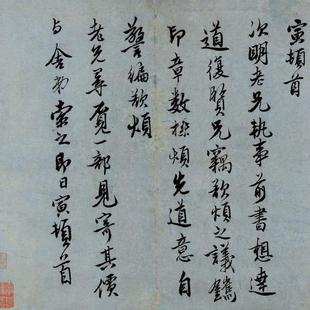 寅頓首
次明老兄執事前書想達
道復賢兄竊欲煩之議鐫
印章數操煩先道意自
警編欲煩
老兄尋覓一部見寄其價
與舍弟索之即日寅頓首